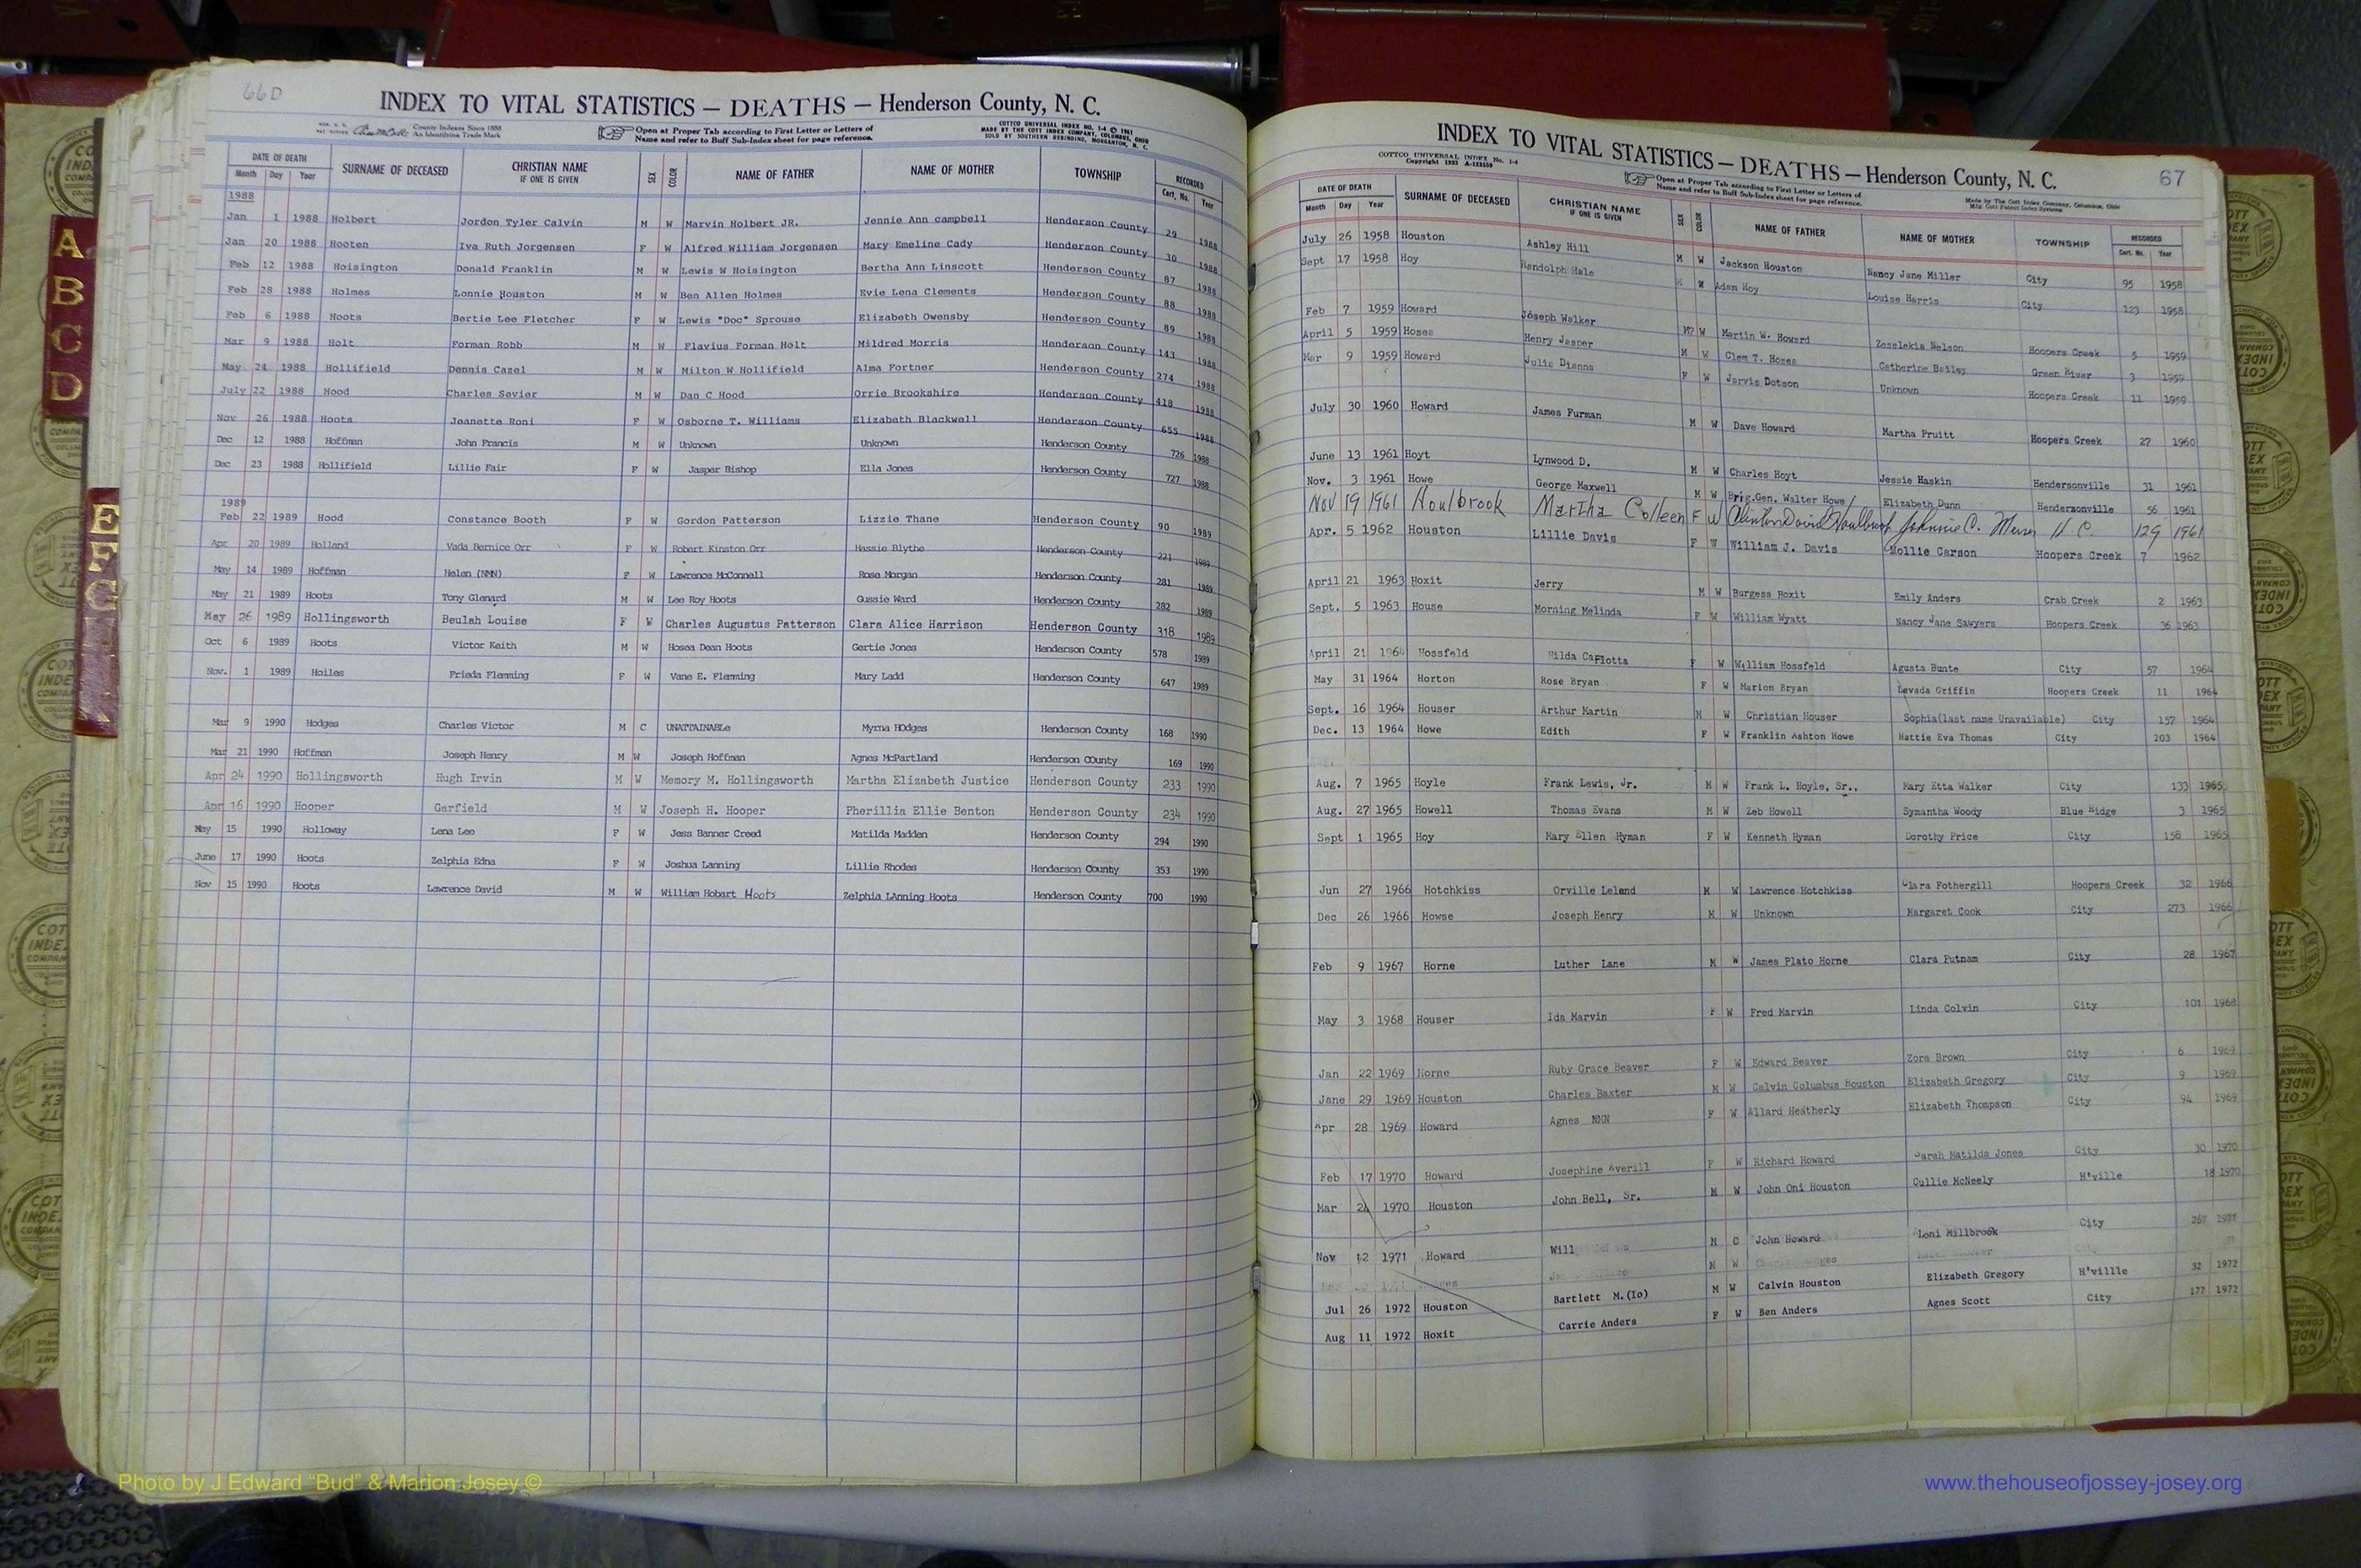 66D
INDEX TO VITAL STATISTICS — DEATHS — Henderson County, N. C.
County Indexes Since 1888
An Identifying Trade Mark
Open at Proper Tab according to First Letter or Letters of
Name and refer to Buff Sub-Index sheet for page reference.
COTTCO UNIVERSAL INDEX NO. 1-4 © 1961
MADE BY THE COTT INDEX COMPANY, COLUMBUS, OHIO
SOLD BY SOUTHERN REBINDING, MORGANTON, N. C.
DATE OF DEATH SURNAME OF DECEASED CHRISTIAN NAME IF ONE IS GIVEN SEX COLOR NAME OF FATHER NAME OF MOTHER TOWNSHIP RECORDED
Month Day Year Cert. No. Year
1988
Jan 1 1988 Holbert Jordon Tyler Calvin M W Marvin Holbert JR. Jennie Ann campbell Henderson County 29 1988
Jan 20 1988 Hooten Iva Ruth Jorgensen F W Alfred William Jorgensen Mary Emeline Cady Henderson County 30 1988
Feb 12 1988 Hoisington Donald Franklin M W Lewis W Hoisington Bertha Ann Linscott Henderson County 87 1988
Feb 28 1988 Holmes Lonnie Houston M W Ben Allen Holmes Evie Lena Clements Henderson County 88 1988
Feb 6 1988 Hoots Bertie Lee Fletcher F W Lewis "Doc" Sprouse Elizabeth Owensby Henderson County 89 1988
Mar 9 1988 Holt Forman Robb M W Flavius Forman Holt Mildred Morris Henderson County 143 1988
May 24 1988 Hollifield Dennis Cazel M W Milton W Hollifield Alma Fortner Henderson County 274 1988
July 22 1988 Hood Charles Sevier M W Dan C Hood Orrie Brookshire Henderson County 418 1988
Nov 26 1988 Hoots Jeanette Roni F W Osborne T. Williams Elizabeth Blackwell Henderson County 655 1988
Dec 12 1988 Hoffman John Francis M W Unknown Unknown Henderson County 726 1988
Dec 23 1988 Hollifield Lillie Fair F W Jasper Bishop Ella Jones Henderson County 727 1988
1989
Feb 22 1989 Hood Constance Booth F W Gordon Patterson Lizzie Thane Henderson County 90 1989
Apr 20 1989 Holland Vada Bernice Orr F W Robert Kinston Orr Hassie Blythe Henderson County 221 1989
May 14 1989 Hoffman Helen (NMN) F W Lawrence McConnell Rose Morgan Henderson County 281 1989
May 21 1989 Hoots Tony Glenard M W Lee Roy Hoots Gussie Ward Henderson County 282 1989
May 26 1989 Hollingsworth Beulah Louise F W Charles Augustus Patterson Clara Alice Harrison Henderson County 318 1989
Oct 6 1989 Hoots Victor Keith M W Hosea Dean Hoots Gertie Jones Henderson County 578 1989
Nov. 1 1989 Hoiles Frieda Flemming F W Vane E. Flemming Mary Ladd Henderson County 647 1989
Mar 9 1990 Hodges Charles Victor M C UNATTAINABLe Myrna HOdges Henderson County 168 1990
Mar 21 1990 Hoffman Joseph Henry M W Joseph Hoffman Agnes McPartland Henderson COunty 169 1990
Apr 24 1990 Hollingsworth Hugh Irvin M W Memory M. Hollingsworth Martha Elizabeth Justice Henderson County 233 1990
Apr 16 1990 Hooper Garfield M W Joseph H. Hooper Pherillia Ellie Benton Henderson County 234 1990
May 15 1990 Holloway Lena Lee F W Jess Banner Creed Matilda Madden Henderson County 294 1990
June 17 1990 Hoots Zelphia Edna F W Joshua Lanning Lillie Rhodes Henderson County 353 1990
Nov 15 1990 Hoots Lawrence David M W William Hobart Hoots Zelphia LAnning Hoots Henderson County 700 1990
67
INDEX TO VITAL STATISTICS — DEATHS — Henderson County, N. C.
COTTCO UNIVERSAL INDEX No. 1-4
Open at Proper Tab according to First Letter or Letters of
Name and refer to Buff Sub-Index sheet for page reference.
Made by The Cott Index Company, Columbus, Ohio
DATE OF DEATH SURNAME OF DECEASED CHRISTIAN NAME IF ONE IS GIVEN SEX COLOR NAME OF FATHER NAME OF MOTHER TOWNSHIP RECORDED
Month Day Year Cert. No. Year
July 26 1958 Houston Ashley Hill M W Jackson Houston Nancy Jane Miller City 95 1958
Sept 17 1958 Hoy Randolph Hale M W Adam Hoy Louise Harris City 123 1958
Feb 7 1959 Howard Joseph Walker M? W Martin W. Howard Zosslekia Nelson Hoopers Creek 5 1959
April 5 1959 Hosea Henry Jasper M W Clem T. Hosea Catherine Bailey Green River 3 1959
Mar 9 1959 Howard Julia Dianna F W Jarvis Dotson Unknown Hoopers Creek 11 1959
July 30 1960 Howard James Furman M W Dave Howard Martha Pruitt Hoopers Creek 27 1960
June 13 1961 Hoyt Lynwood D. M W Charles Hoyt Jessie Haskin Hendersonville 31 1961
Nov. 3 1961 Howe George Maxwell M W Brig.Gen. Walter Howe Elizabeth Dunn Hendersonville 56 1961
Nov 19 1961 Houlbrook Martha Colleen F W Clinton David Houlbrook Johnnie C. H C. 129 1961
Apr. 5 1962 Houston Lillie Davis F W William J. Davis Mollie Carson Hoopers Creek 7 1962
April 21 1963 Hoxit Jerry M W Burgess Hoxit Emily Anders Crab Creek 2 1963
Sept. 5 1963 House Morning Melinda F W William Wyatt Nancy Jane Sawyers Hoopers Creek 36 1963
April 21 1964 Hossfeld Hilda Carlotta F W William Hossfeld Agusta Bunte City 57 1964
May 31 1964 Horton Rose Bryan F W Marion Bryan Levada Griffin Hoopers Creek 11 1964
Sept. 16 1964 Houser Arthur Martin M W Christian Houser Sophia(last name Unavailable) City 157 1964
Dec. 13 1964 Howe Edith F W Franklin Ashton Howe Hattie Eva Thomas City 203 1964
Aug. 7 1965 Hoyle Frank Lewis, Jr. M W Frank L. Hoyle, Sr., Mary Etta Walker City 133 1965
Aug. 27 1965 Howell Thomas Evans M W Zeb Howell Symantha Woody Blue Ridge 3 1965
Sept 1 1965 Hoy Mary Ellen Hyman F W Kenneth Hyman Dorothy Price City 158 1965
Jun 27 1966 Hotchkiss Orville Leland M W Lawrence Hotchkiss Clara Fothergill Hoopers Creek 32 1966
Dec 26 1966 Howse Joseph Henry M W Unknown Margaret Cook City 273 1966
Feb 9 1967 Horne Luther Lane M W James Plato Horne Clara Putnam City 28 1967
May 3 1968 Houser Ida Marvin F W Fred Marvin Linda Colvin City 101 1968
Jan 22 1969 Horne Ruby Grace Beaver F W Edward Beaver Zora Brown City 6 1969
Jane 29 1969 Houston Charles Baxter M W Calvin Columbus Houston Elizabeth Gregory City 9 1969
Apr 28 1969 Howard Agnes NMN F W Allard Heatherly Elizabeth Thompson City 94 1969
Feb 17 1970 Howard Josephine Averill F W Richard Howard Sarah Matilda Jones City 30 1970
Mar 24 1970 Houston John Bell, Sr. M W John Oni Houston Cullie McNeely H'ville 18 1970
Nov 12 1971 Howard Will M C John Howard Loni Millbrook City 267 1971
M W
Jul 26 1972 Houston Bartlett M.(Io) M W Calvin Houston Elizabeth Gregory H'villle 32 1972
Aug 11 1972 Hoxit Carrie Anders F W Ben Anders Agnes Scott City 177 1972
A
B
C
D
E
F
G
Photo by J Edward “Bud” & Marion Josey ©
www.thehouseofjossey-josey.org